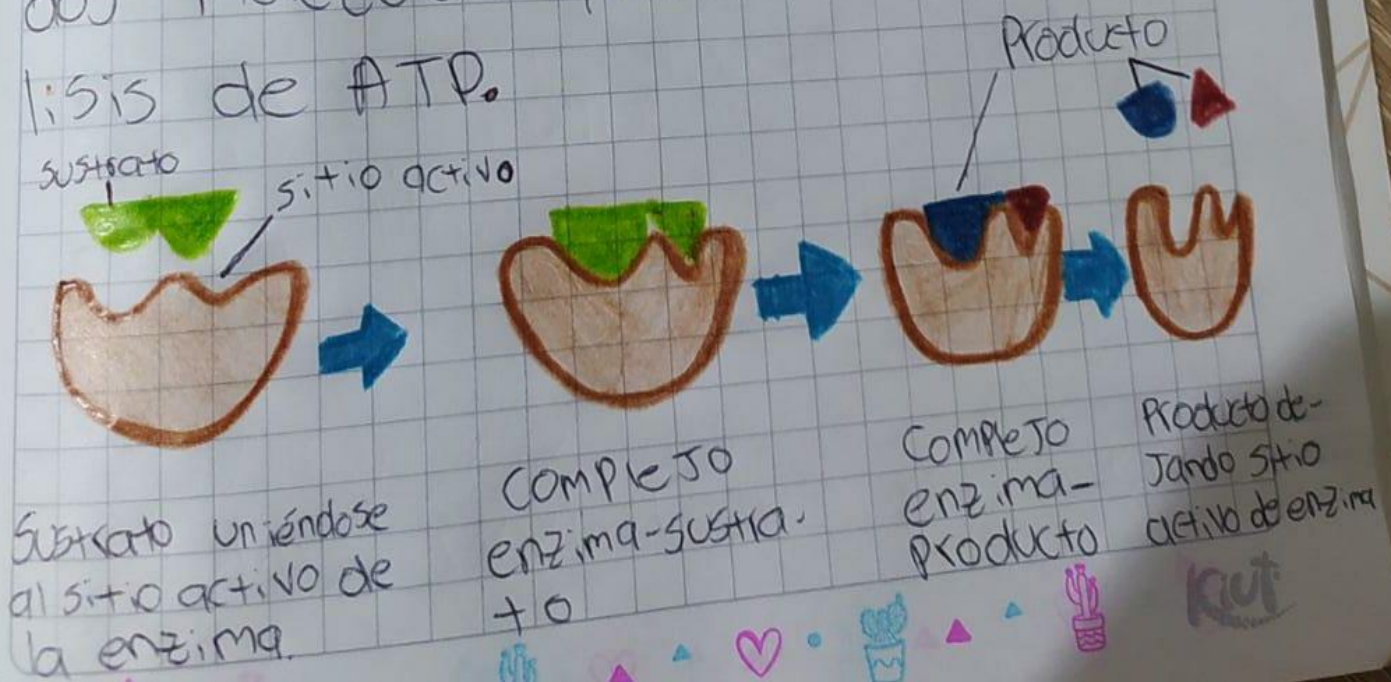 lisis de ATP.
Producto
sustrato
sitio activo
Sustrato uniéndose
al sitio activo de
la enzima.
Complejo
enzima-sustra-
to
Complejo
enzima-
producto
Producto de-
jando sitio
activo de enzima
Kiut